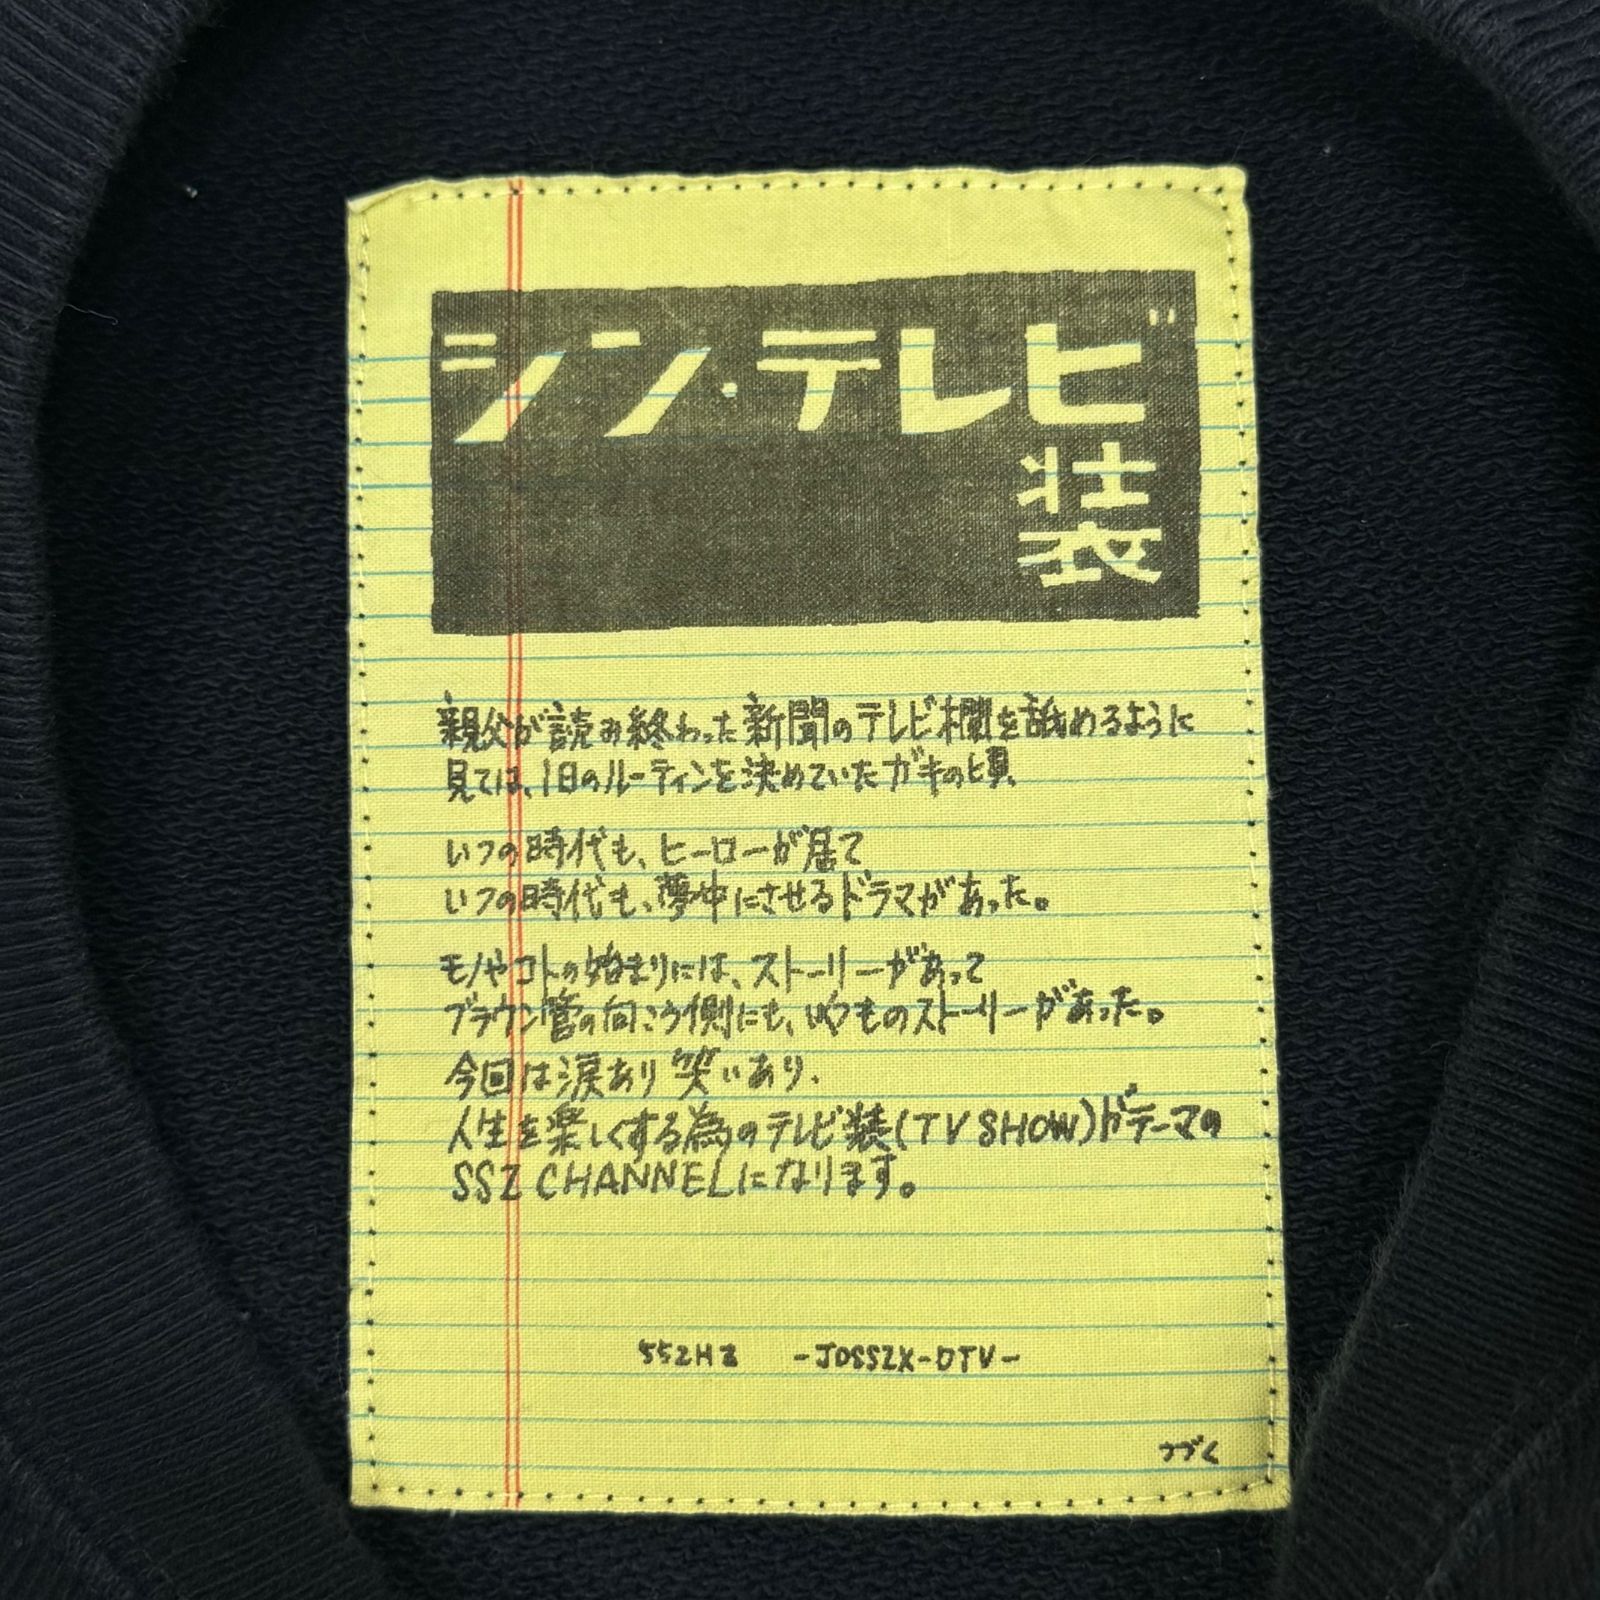 シン・テレビ
装
親父が読み終わった新聞のテレビ欄を舐めるように
見ては、1日のルーティンを決めていたガキの頃、
いつの時代も、ヒーローが居て
いつの時代も、夢中にさせるドラマがあった。
モノやコトの始まりには、ストーリーがあって
ブラウン管の向こう側にも、いくつものストーリーがあった。
今回は涙あり笑いあり、
人生を楽しくする為のテレビ装(TV SHOW)がテーマの
SSZ CHANNELになります。
552HZ -JOSSZX-DTV-
つづく